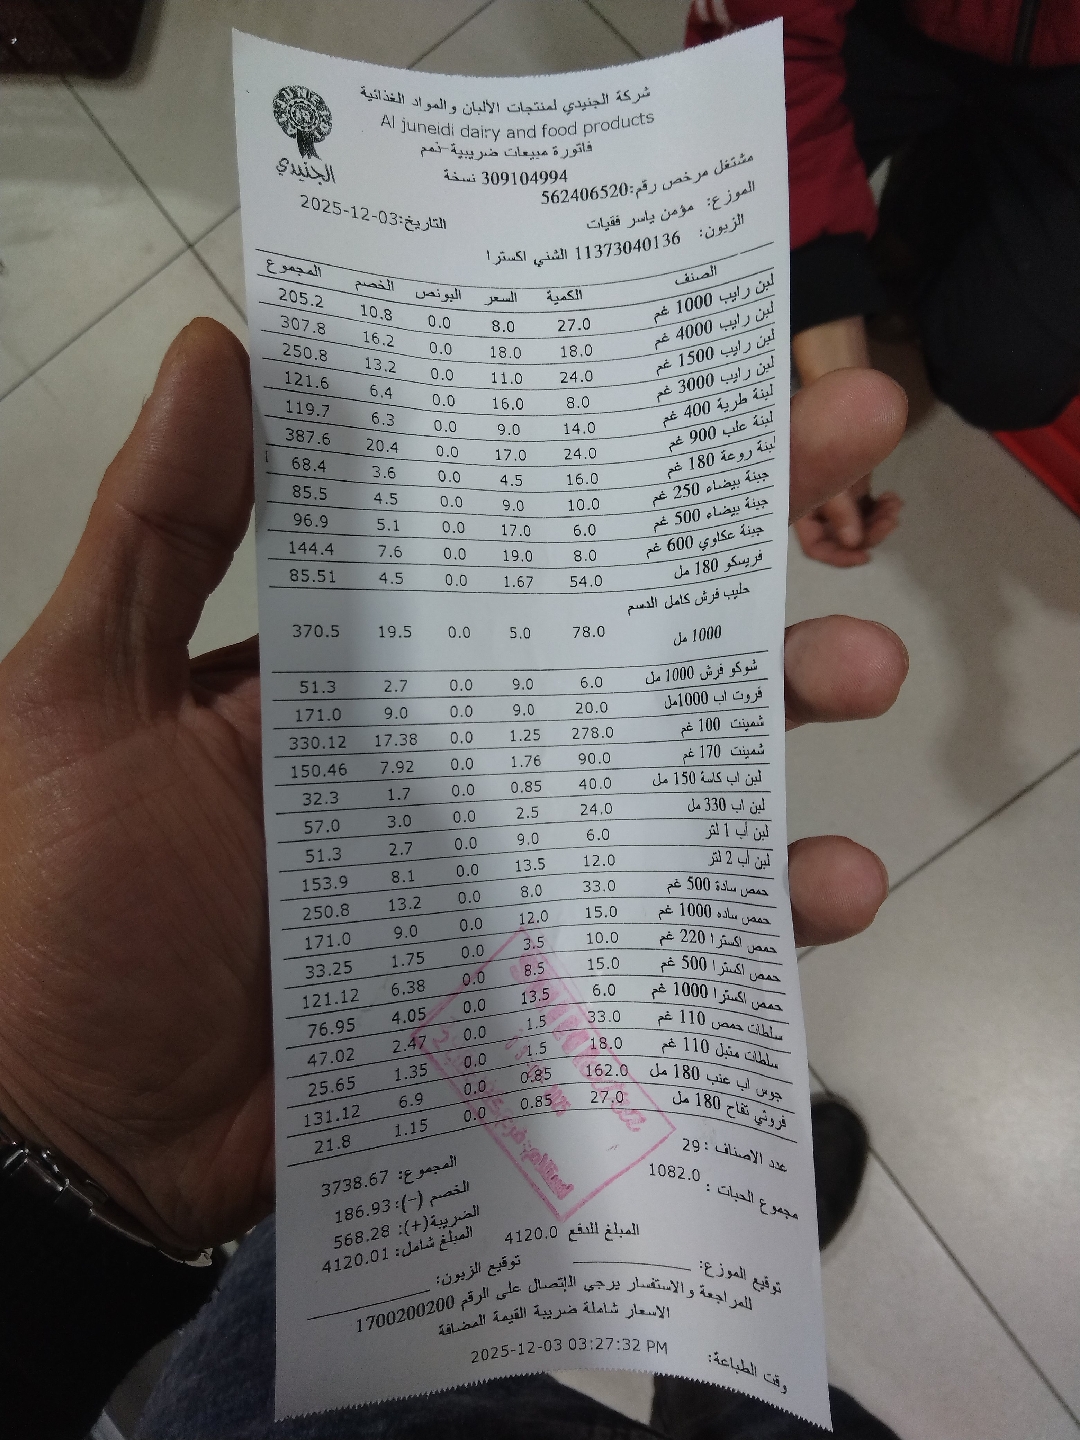 شركة الجنيدي لمنتجات الألبان والمواد الغذائية
Al juneidi dairy and food products
فاتورة مبيعات ضريبية-ذمم
309104994 نسخة
الجنيدي
مشتغل مرخص رقم:562406520
التاريخ:2025-12-03
الموزع: مؤمن ياسر فقيات
الزبون: 11373040136 الشني اكسترا
الصنف الكمية السعر البونص الخصم المجموع
لبن رايب 1000 غم 27.0 8.0 0.0 10.8 205.2
لبن رايب 4000 غم 18.0 18.0 0.0 16.2 307.8
لبن رايب 1500 غم 24.0 11.0 0.0 13.2 250.8
لبن رايب 3000 غم 8.0 16.0 0.0 6.4 121.6
لبنة طرية 400 غم 14.0 9.0 0.0 6.3 119.7
لبنة علب 900 غم 24.0 17.0 0.0 20.4 387.6
لبنة روعة 180 غم 16.0 4.5 0.0 3.6 68.4
جبنة بيضاء 250 غم 10.0 9.0 0.0 4.5 85.5
جبنة بيضاء 500 غم 6.0 17.0 0.0 5.1 96.9
جبنة عكاوي 600 غم 8.0 19.0 0.0 7.6 144.4
فريسكو 180 مل 54.0 1.67 0.0 4.5 85.51
حليب فرش كامل الدسم
1000 مل 78.0 5.0 0.0 19.5 370.5
شوكو فرش 1000 مل 6.0 9.0 0.0 2.7 51.3
فروت اب 1000مل 20.0 9.0 0.0 9.0 171.0
شمينت 100 غم 278.0 1.25 0.0 17.38 330.12
شمينت 170 غم 90.0 1.76 0.0 7.92 150.46
لبن اب كاسة 150 مل 40.0 0.85 0.0 1.7 32.3
لبن اب 330 مل 24.0 2.5 0.0 3.0 57.0
لبن أب 1 لتر 6.0 9.0 0.0 2.7 51.3
لبن أب 2 لتر 12.0 13.5 0.0 8.1 153.9
حمص سادة 500 غم 33.0 8.0 0.0 13.2 250.8
حمص ساده 1000 غم 15.0 12.0 0.0 9.0 171.0
حمص اكسترا 220 غم 10.0 3.5 0.0 1.75 33.25
حمص اكسترا 500 غم 15.0 8.5 0.0 6.38 121.12
حمص اكسترا 1000 غم 6.0 13.5 0.0 4.05 76.95
سلطات حمص 110 غم 33.0 1.5 0.0 2.47 47.02
سلطات متبل 110 غم 18.0 1.5 0.0 1.35 25.65
جوس اب عنب 180 مل 162.0 0.85 0.0 6.9 131.12
فروتي تفاح 180 مل 27.0 0.85 0.0 1.15 21.8
عدد الاصناف :29
مجموع الحبات : 1082.0
المجموع: 3738.67
الخصم (-): 186.93
الضريبة(+): 568.28
المبلغ شامل: 4120.01
المبلغ للدفع 4120.0
توقيع الموزع:
توقيع الزبون:
للمراجعة والاستفسار يرجى الإتصال على الرقم 1700200200
الاسعار شاملة ضريبة القيمة المضافة
وقت الطباعة: 2025-12-03 03:27:32 PM